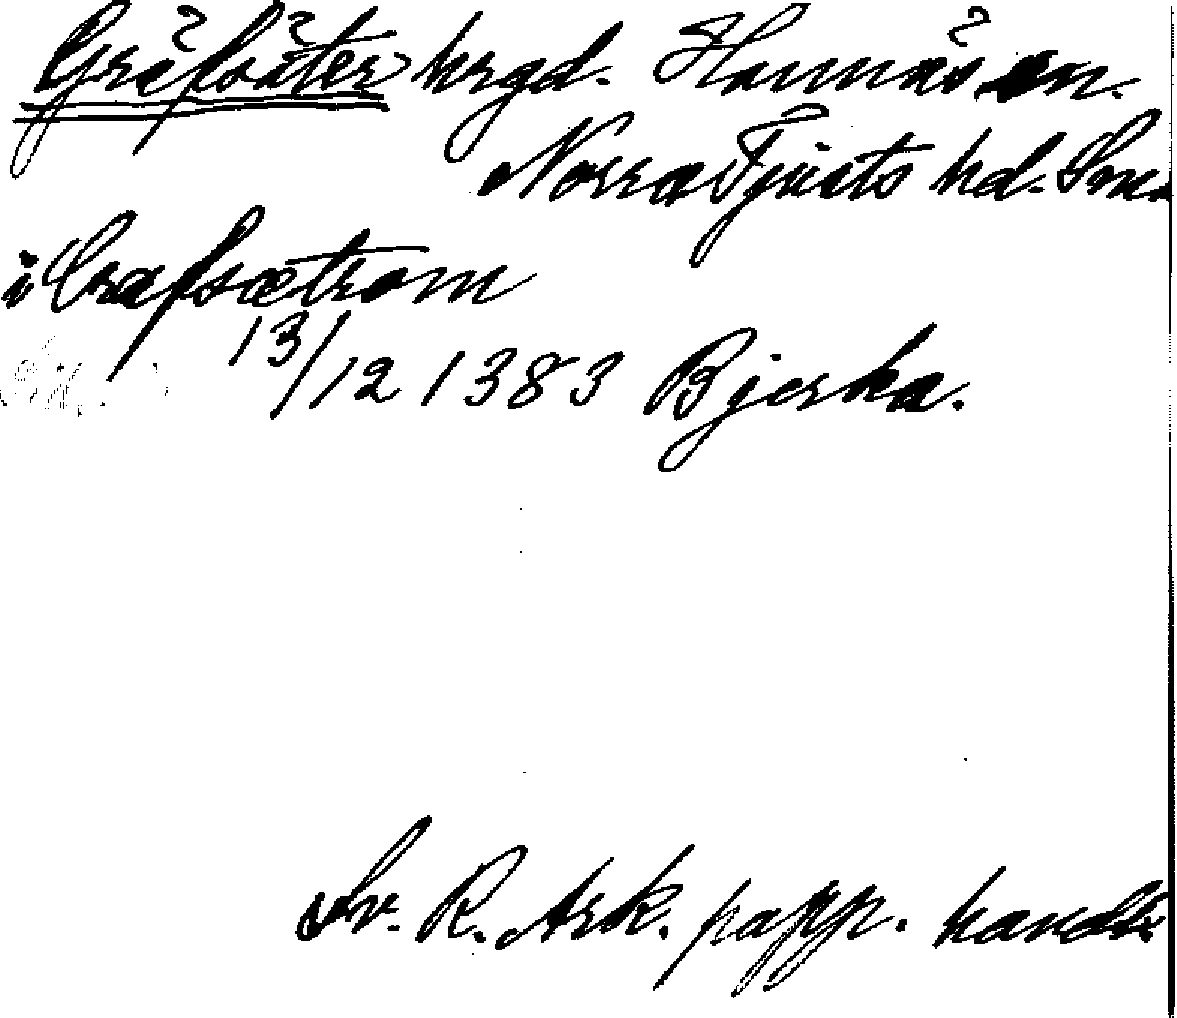 Gräfsäter hrgd. Hannäs sn.
Norra Tjusts hd. Sm.
i Crafsætrom
13/12 1383 Bjerka.
Sv. R. Ark. papp. handl.